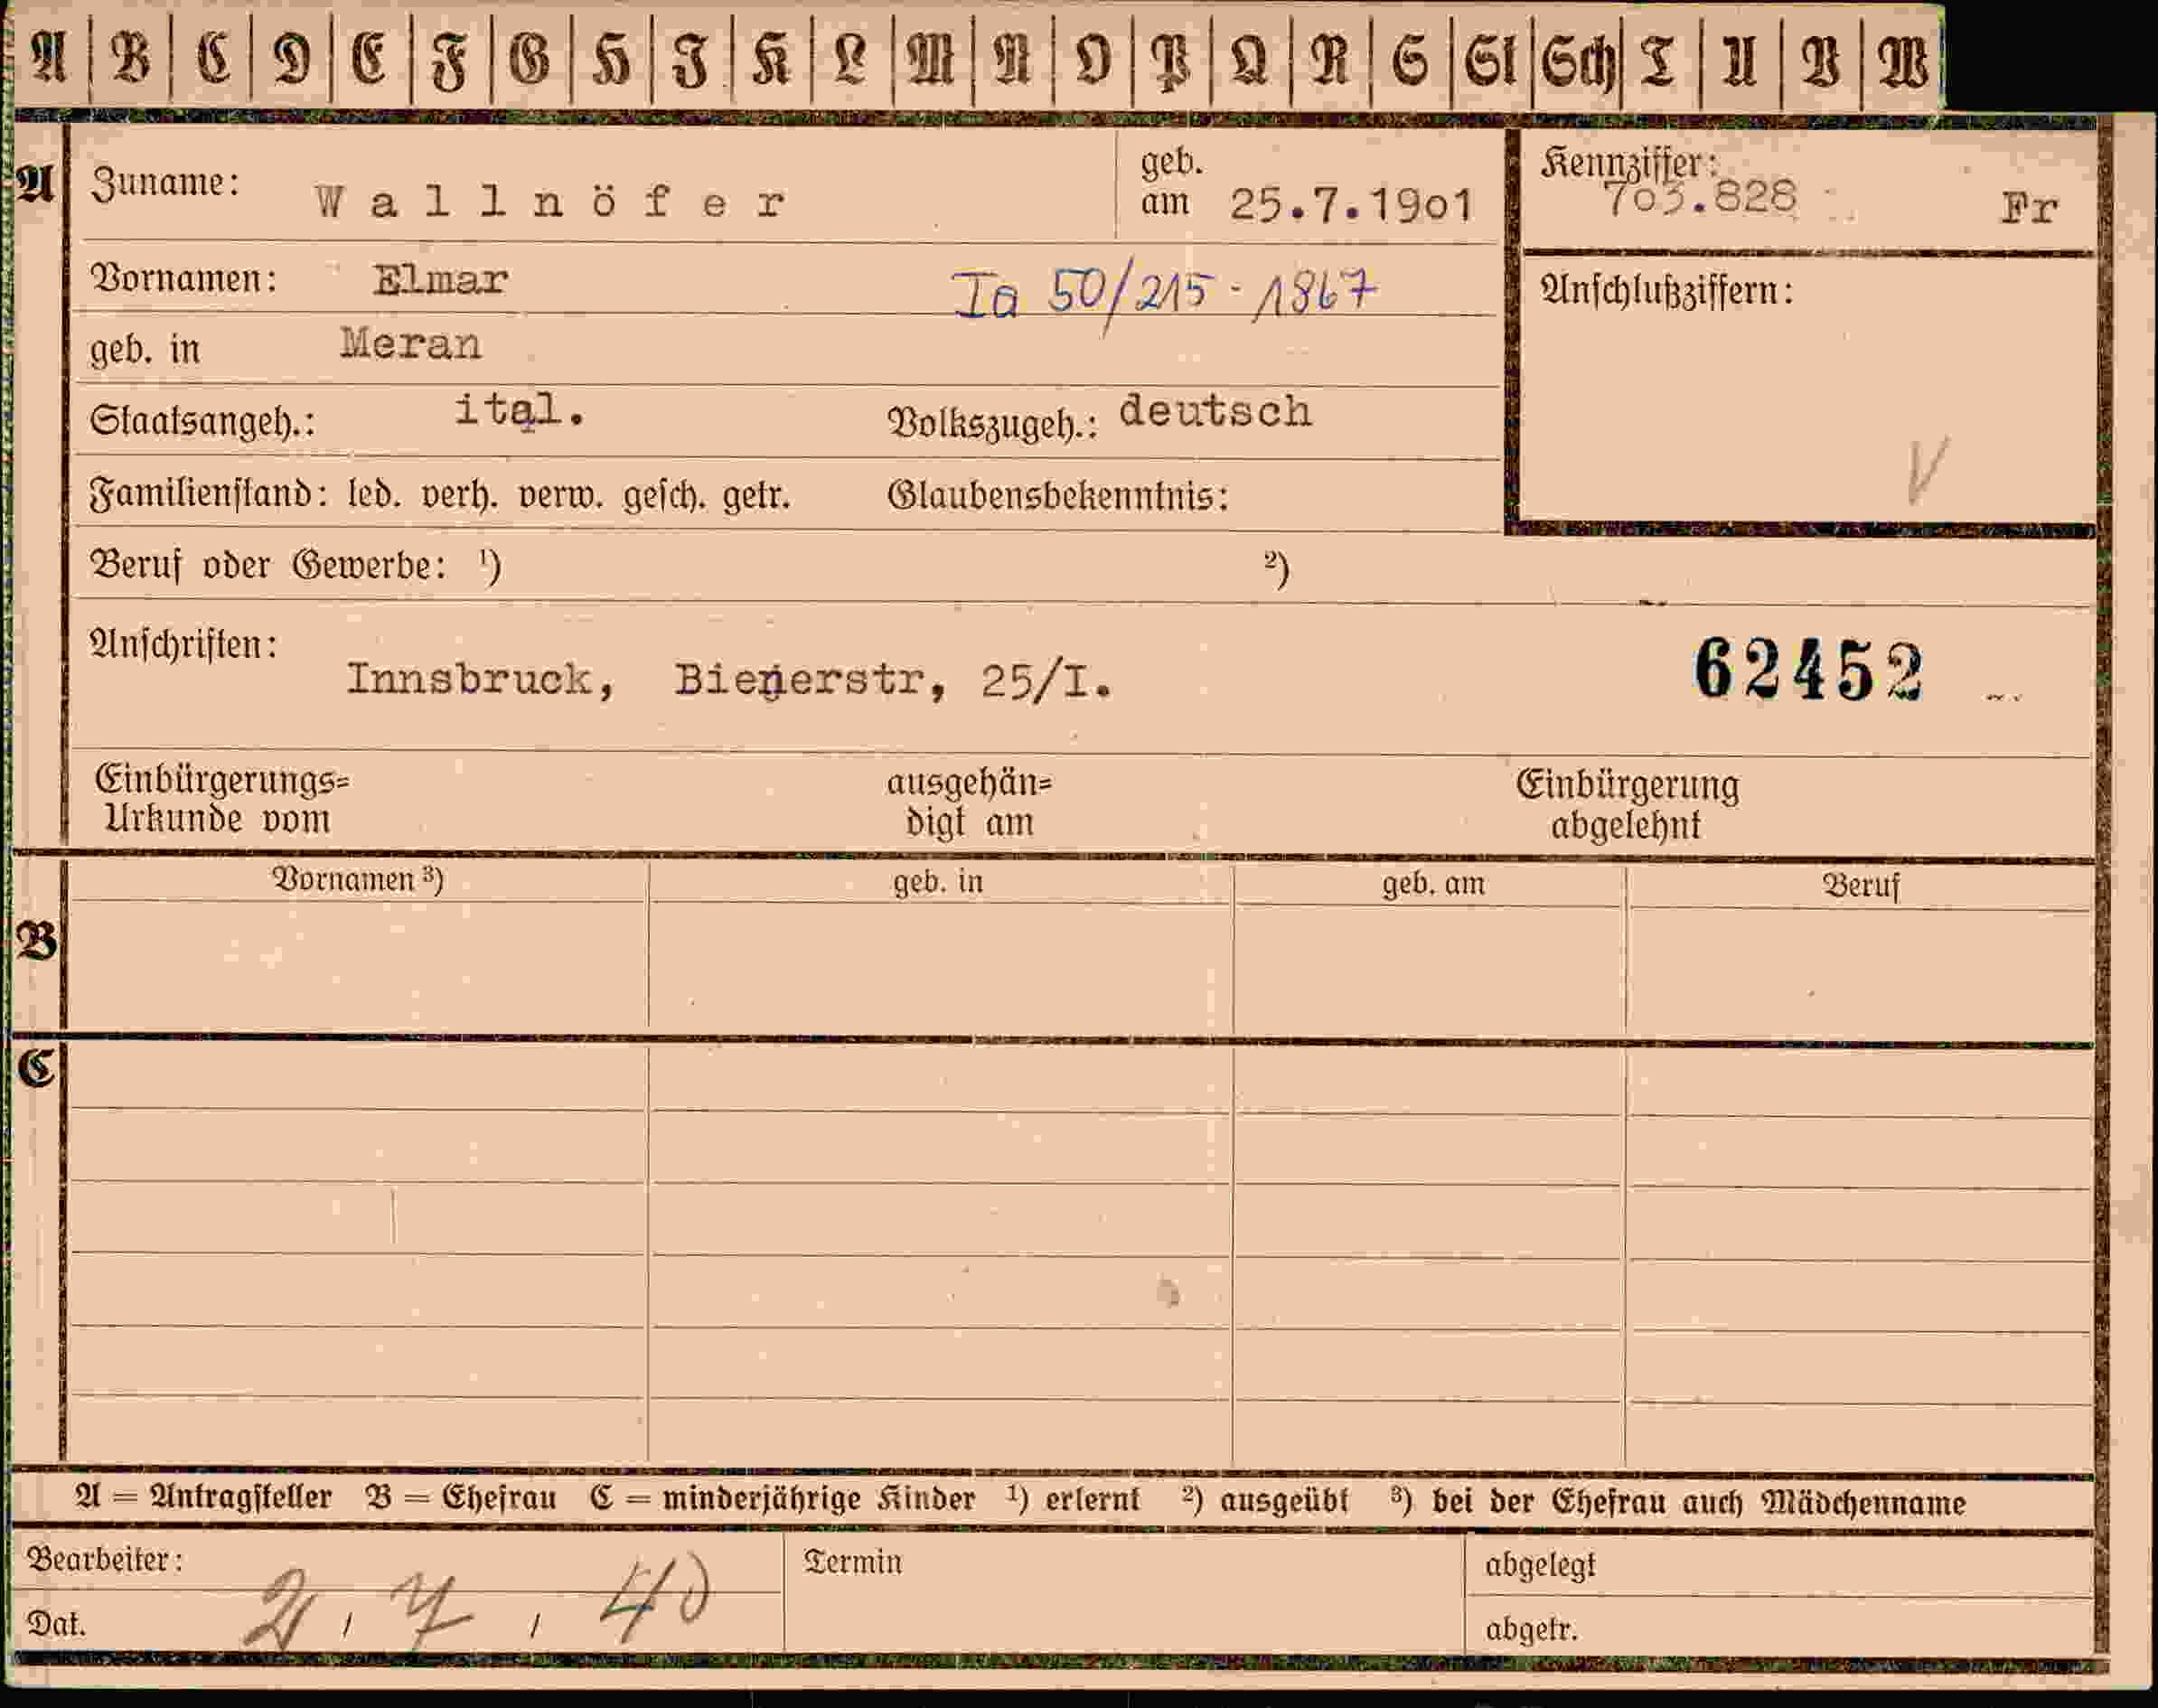 A B C D E F G H I K L M N O P Q R S St Sch T U V W
A Zuname: Wallnöfer geb. am 25.7.1901 Kennziffer: 703.828 Fr
Vornamen: Elmar Ia 50/215-1867 Anschlußziffern:
geb. in Meran
Staatsangeh.: ital. Volkszugeh.: deutsch
V
Familienstand: led. verh. verw. gesch. getr. Glaubensbekenntnis:
Beruf oder Gewerbe: ¹) ²)
Anschriften: Innsbruck, Bienerstr, 25/I. 62452
Einbürgerungs= ausgehän= Einbürgerung
Urkunde vom digt am abgelehnt
Vornamen ³) geb. in geb. am Beruf
B
C
A = Antragsteller B = Ehefrau C = minderjährige Kinder ¹) erlernt ²) ausgeübt ³) bei der Ehefrau auch Mädchenname
Bearbeiter: Termin abgelegt
Dat. 2/7/40 abgetr.